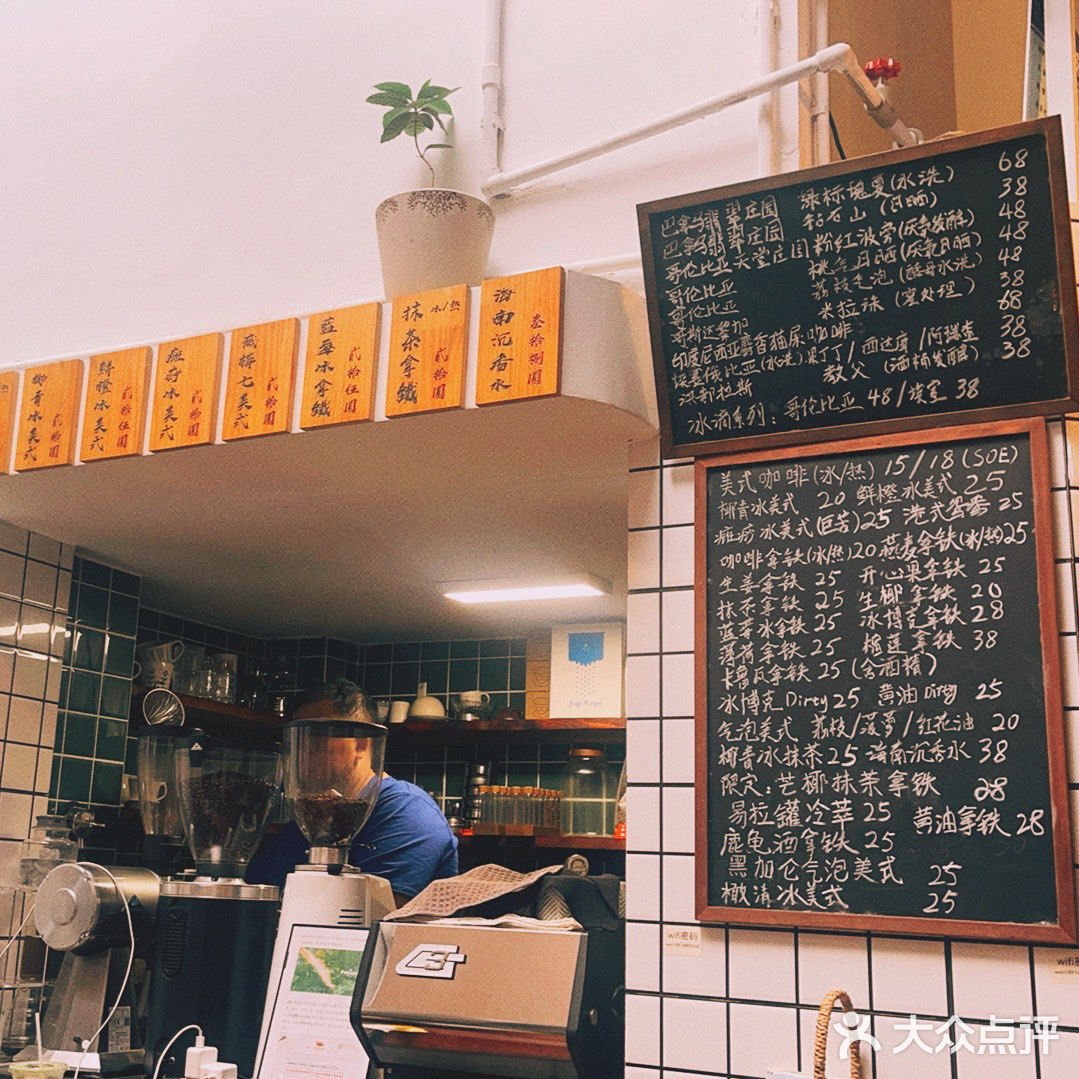 海南沉香水
叁拾捌圆
抹茶拿鐵
冰/热
贰拾圆
蓝莓冰拿鐵
贰拾伍圆
咸梅七美式
贰拾圆
斑斓冰美式
贰拾圆
鲜橙冰美式
贰拾伍圆
椰青冰美式
贰拾圆
巴拿马翡翠庄园 绿标瑰夏(水洗) 68
巴拿马翡翠庄园 钻石山(日晒) 38
哥伦比亚天堂庄园 粉红波旁(厌氧发酵) 48
哥伦比亚 桃气日晒(厌氧日晒) 48
哥伦比亚 荔枝气泡(酵母水洗) 48
哥斯达黎加 米拉珠(蜜处理) 38
印度尼西亚麝香猫屎咖啡 68
埃塞俄比亚(水洗)果丁丁/西达摩/阿瑞查 38
洪都拉斯 教父(酒桶发酵) 38
冰滴系列:哥伦比亚 48/埃塞 38
美式咖啡(冰/热) 15/18(SOE)
椰青冰美式 20 鲜橙冰美式 25
斑斓冰美式(巨苦)25 港式鸳鸯 25
咖啡拿铁(冰/热)20 燕麦拿铁(冰/热)25
生姜拿铁 25 开心果拿铁 25
抹茶拿铁 25 生椰拿铁 20
蓝莓冰拿铁 25 冰博克拿铁 28
薄荷拿铁 25 榴莲拿铁 38
卡鲁瓦拿铁 25(含酒精)
冰博克Dirty 25 黄油Dirty 25
气泡美式 荔枝/菠萝/红花油 20
椰青冰抹茶 25 海南沉香水 38
限定:芒椰抹茶拿铁 28
易拉罐冷萃 25 黄油拿铁 28
鹿龟酒拿铁 25
黑加仑气泡美式 25
橄清冰美式 25
wifi密码
wifi密
G3
大众点评